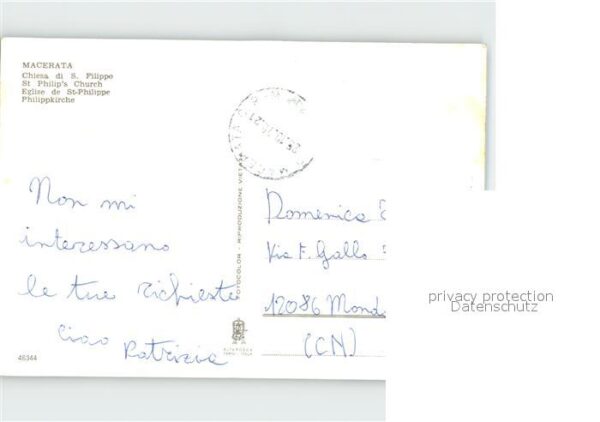 MACERATA
Chiesa di S. Filippo
St Philip's Church
Eglise de St-Philippe
Philippkirche
Non mi
interessano
le tue richieste
Ciao Patrizia
46344
FOTOCOLOR - RIPRODUZIONE VIETATA
Domenica
Via F. Gallo
12086 Mond
(CN)
privacy protection
Datenschutz